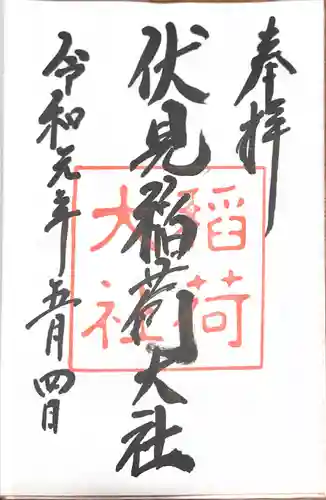 奉拝
伏見稲荷大社
稲荷
大社
令和元年五月四日